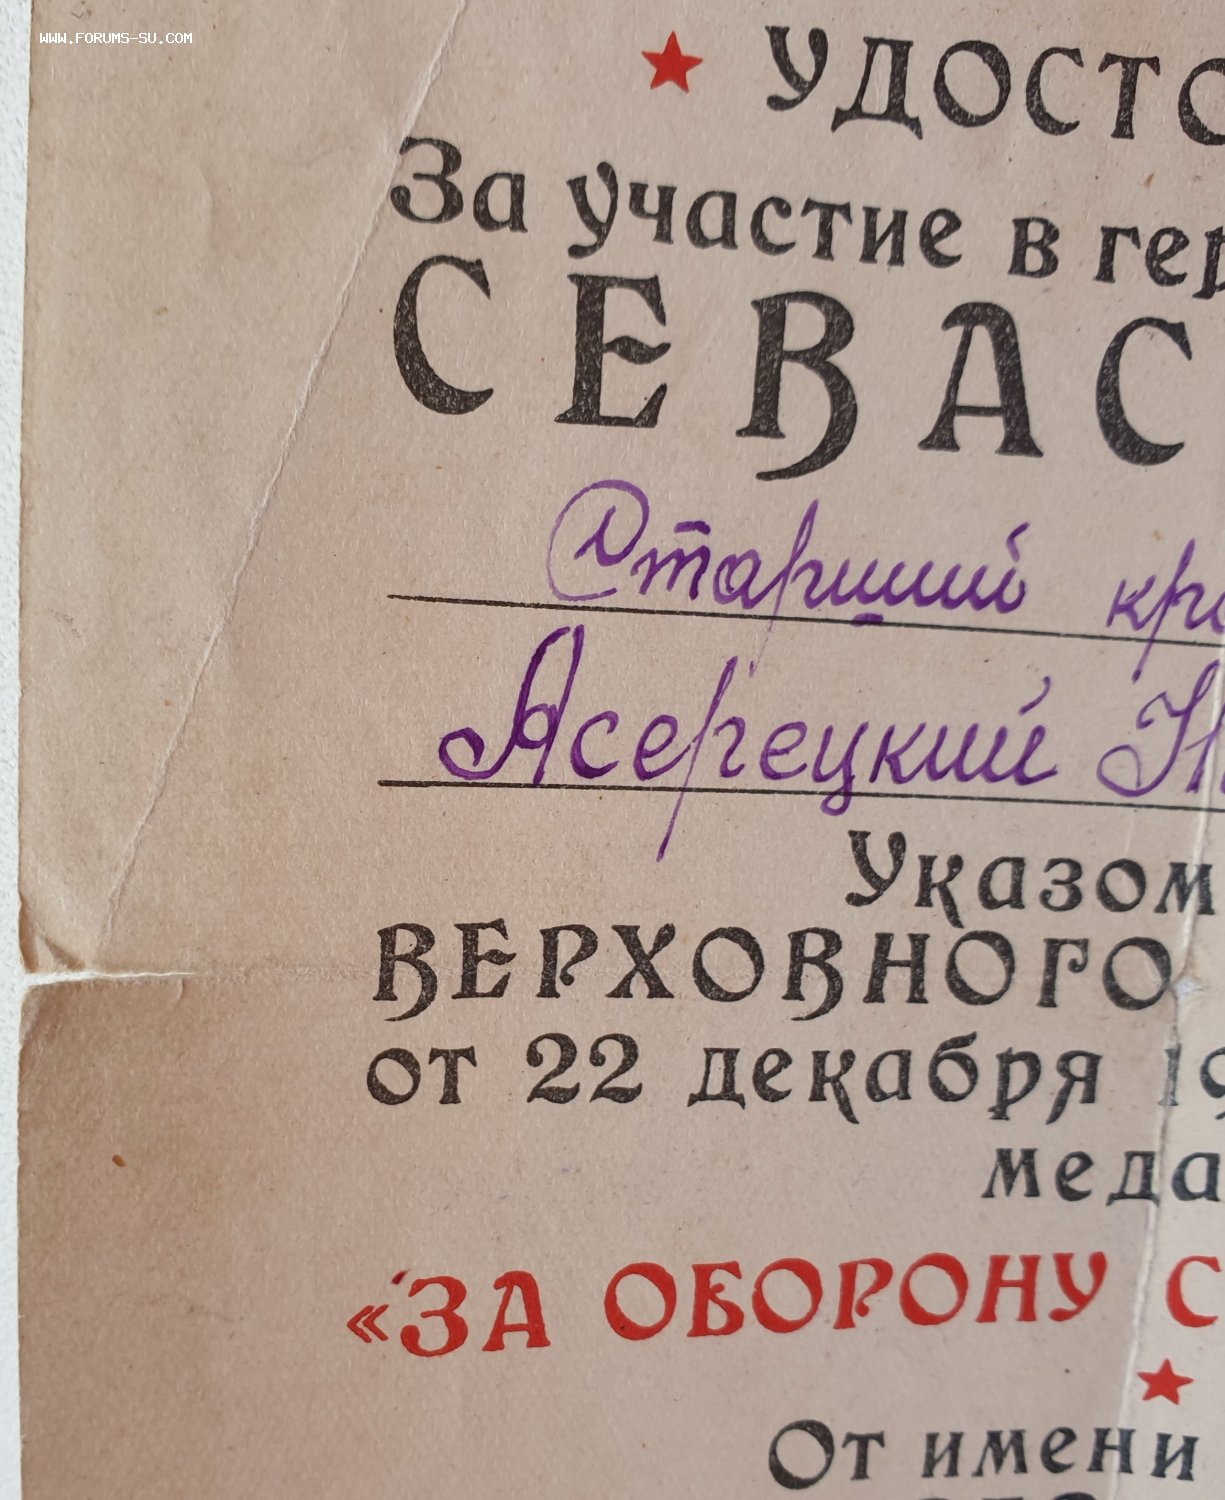 WWW.FORUMS-SU.COM
★ УДОСТО
За участие в гер
СЕВАС
Старший кра
Ясерецкий Н
Указом
ВЕРХОВНОГО
от 22 декабря 19
меда
«ЗА ОБОРОНУ С
★
От имени